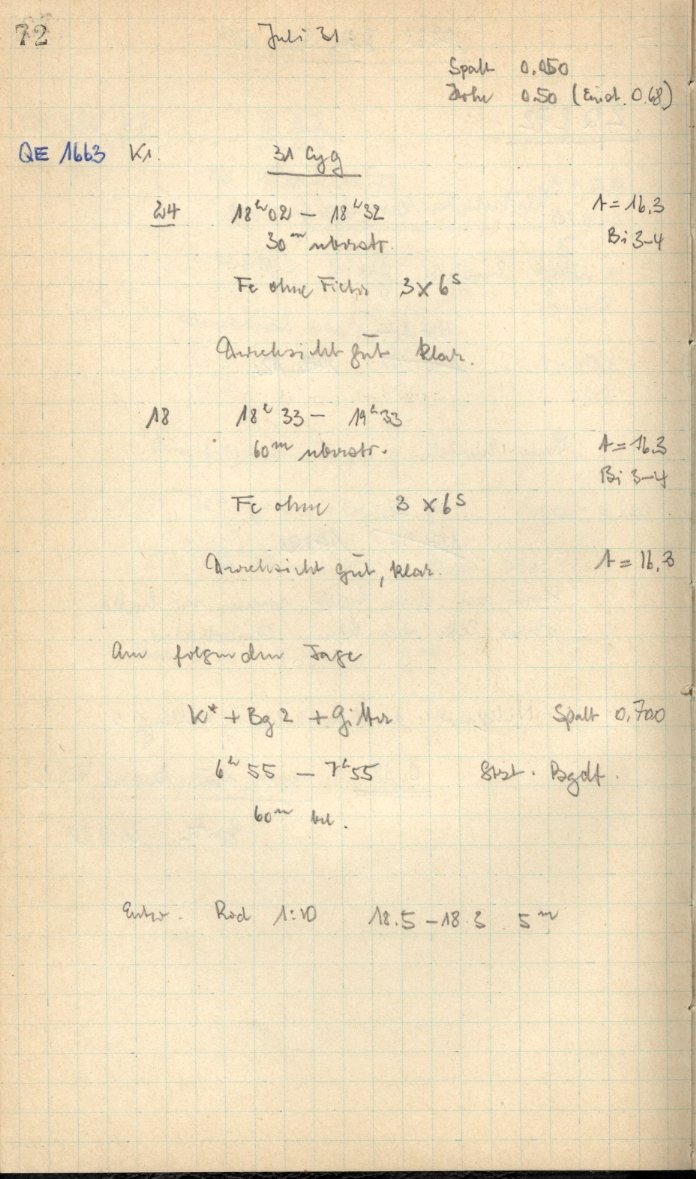 72 Juli 31
Spalt 0.050
Höhe 0.50 (Eindt. 0.68)
QE 1663 K1. 31 Cyg
24 18ʰ02 – 18ʰ32 A = 16.3
30ᵐ überstr. Bi 3–4
Fe ohne Filter 3×6ˢ
Durchsicht gut klar.
18 18ʰ33 – 19ʰ33
60ᵐ überstr. A = 16.3
Bi 3–4
Fe ohne 3×6ˢ
Durchsicht gut, klar. A = 16,3
Am folgenden Tage
K* + Bg 2 + Gitter Spalt 0,700
6ʰ55 – 7ʰ55
60ᵐ bel.
Entw. Rod 1:10 18.5 – 18.3 5ᵐ